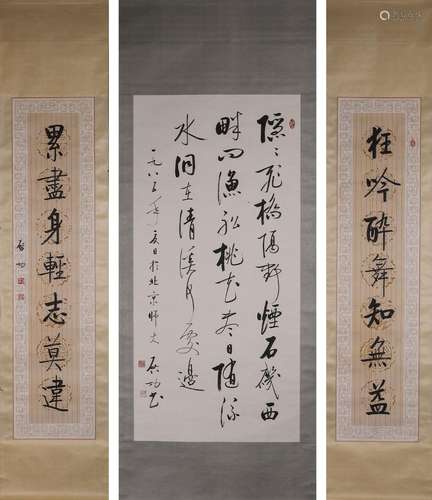 狂吟醉舞知無益
隱〻飛橋隔野煙石磯西
畔問漁船桃花盡日隨流
水洞在清溪何處邊
一九八五年夏日於北京師大
啟功書
累盡身輕志莫違
啟功